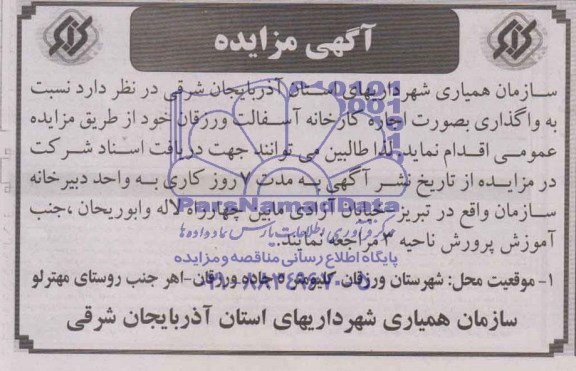 آگهی مزایده
سازمان همیاری شهرداریهای استان آذربایجان شرقی در نظر دارد نسبت
به واگذاری بصورت اجاره کارخانه آسفالت ورزقان خود از طریق مزایده
عمومی اقدام نماید لذا طالبین می توانند جهت دریافت اسناد شرکت
در مزایده از تاریخ نشر آگهی به مدت ۷ روز کاری به واحد دبیرخانه
سازمان واقع در تبریز خیابان آزادی مابین چهارراه لاله وابوریحان ،جنب
آموزش پرورش ناحیه ۳ مراجعه نمائید.
۱- موقعیت محل: شهرستان ورزقان کیلومتر ۵ جاده ورزقان-اهر جنب روستای مهترلو
سازمان همیاری شهرداریهای استان آذربایجان شرقی
ParsNamadData
پایگاه اطلاع رسانی مناقصه و مزایده